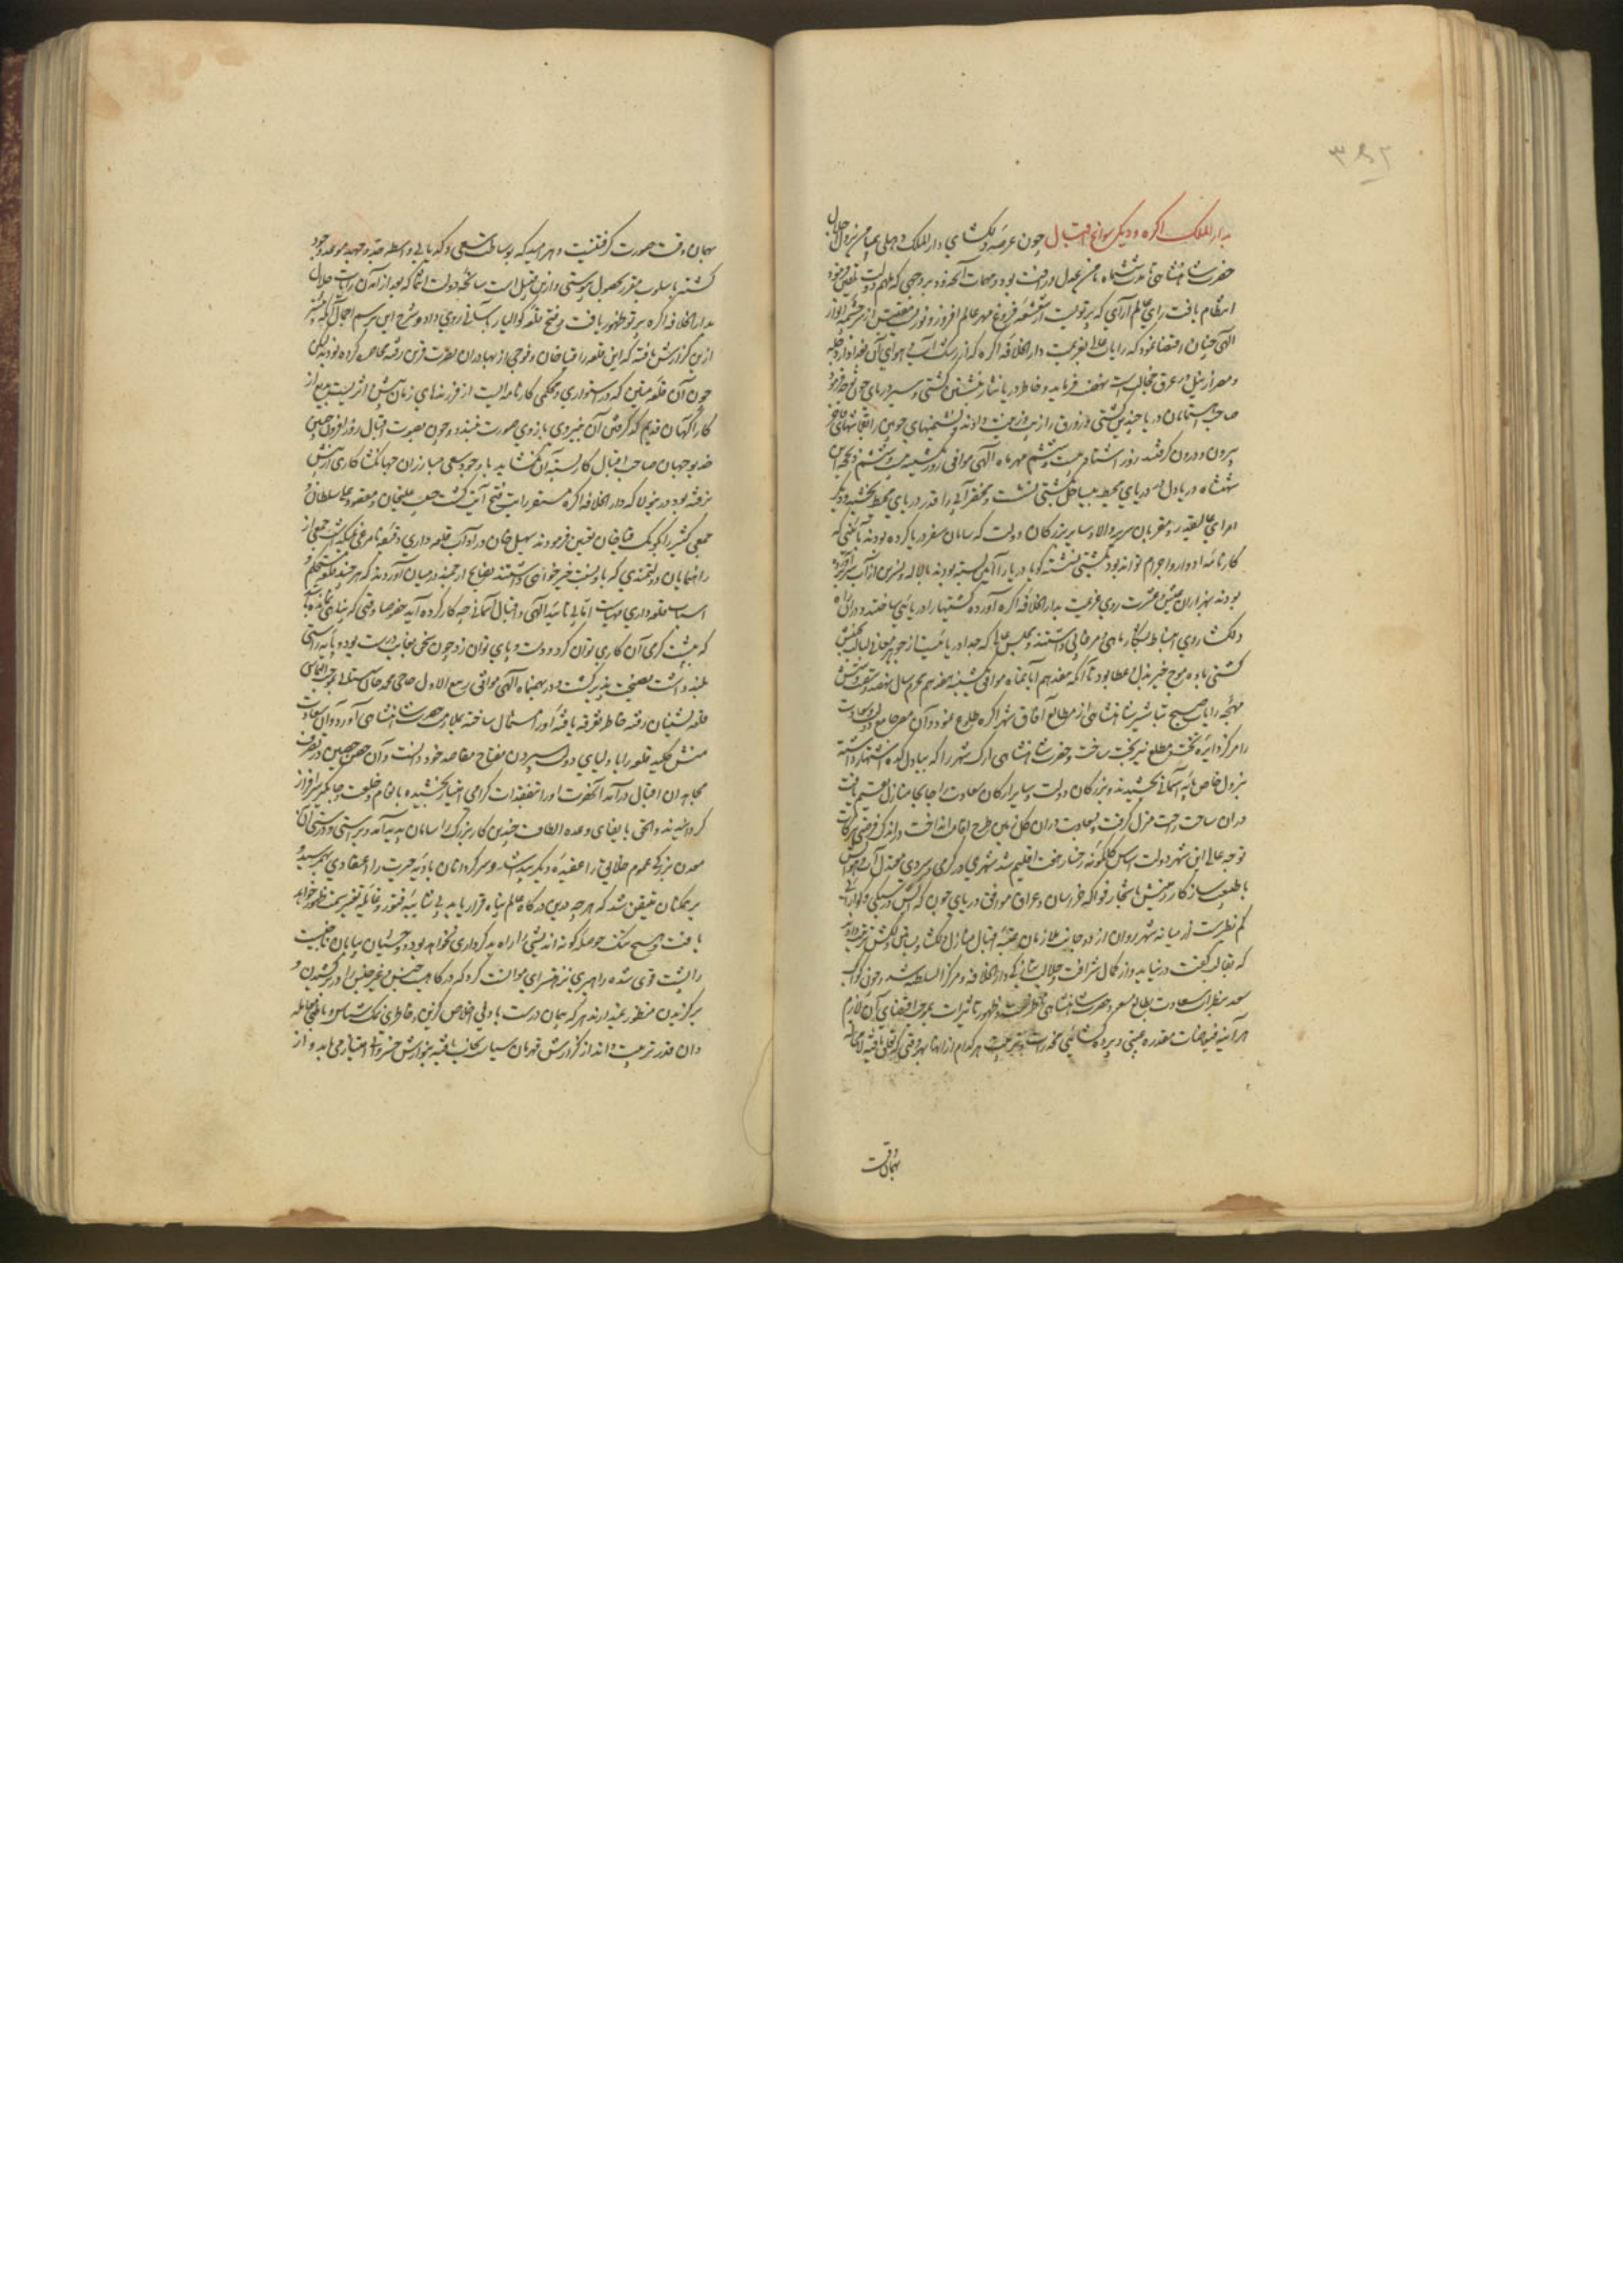 بدار الملک اکره و دیگر سوانح اقبال چون عرصه دلکشای دار الملک دهلی بمیامن نزول اجلال
حضرت شاهنشاهی تا مدت ششماه مامن عدل و رافت بود و مهمات آنحدود بر وجهی که ملهم دولت تلقین فرمود
انتظام یافت رای عالم آرای که پرتویست از شعشعه فروغ مهر عالم افروز و نوریست مقتبس از سرچشمه انوار
الهی چنان اقتضا نمود که رایات عالی بعزیمت دار الخلافه اکره که از رشک آب و هوای آن بغداد از دجله
و مصر از نیل در عرق خجالت است نهضت فرماید و خاطر دریا نثار بنشستن کشتی و سیر دریای جون توجه فرمود
صاحب اهتمامان دریا چندین کشتی و زورق را زیب و زینت دادند و نشیمنهای چوبین را بقماشهای فاخر
بیرون و درون گرفتند روز اشتاد بیست و ششم مهر ماه الهی موافق روز یکشنبه بیست و ششم ذیحجه این
شهنشاه دریا دل در دریای محیط بساحل بکشتی نشست و محقر آبی را قدر دریای محیط بخشید و دیگر
امرای عالیقدر و مقربان سریر والا و سایر بزرگان دولت که سامان سفر دریا کرده بودند بآئینی که
کارنامه ادوار و اجرام تواند بود بکشتی نشسته گویا دریا را آئین بسته بودند یا لاله و نسرین از آب سر برآورده
بودند بهزاران عیش و عشرت روی عزیمت بدار الخلافه اکره آورده کشتیها را دریائی ساختند و در ان راه
دلکشا روی انبساط بشکار ماهی و مرغابی داشتند و مجلس عالی که جدا دریائیست از جوهر معانی لبالب بخشش
کشتی باده موج خیز بذل و عطا بود تا آنکه هفدهم آبانماه موافق یکشنبه هفدهم محرم سال نهصد و شصت و شش
مهچه رایات صبح تباشیر شاهنشاهی از مطالع آفاق شهر اکره طلوع نمود و آن مصر جامع دولت و سعادت
را مرکز دایره تخت و مطلع نیر بخت ساخت و حضرت شاهنشاهی ارک شهر را که ببادل کده اشتهار داشت
بنزول خاص پایه آسمانی بخشیدند و بزرگان دولت و سایر ارکان سعادت را جابجا منازل تقسیم یافت
در ان ساحت راحت منزل گرفت و بسعادت در ان گل زمین طرح اقامت انداخت در اندک فرصتی ببرکات
توجه عالی این شهر دولت اساس گلگونه رخسار هفت اقلیم شد شهری در گرمی و سردی معتدل آب و هوایش
با طبیعت سازگار زمینش باشجار فواکه خراسان و عراق موافق دریای جون که آبش در سبکی و گوارائی
کم نظیرست از میانه شهر روان از دو جانب ملازمان عتبه اقبال منازل دلکشا و بساتین دلکش ترتیب دادند
که بقالب گفت درنیاید و از کمال شرافت و جلالت بتازگی دار الخلافه و مرکز السلطنه شد و چون کواکب
سعد بنظر ای سعادت بطالع مسعود حضرت شاهنشاهی ناظرست و ظهور تاثیرات بموجب اقتضای آن لازم
هر آینه فیوضات مقدره غیبی در پرده کشائیی مخدرات و هر کدام از انها بهر وقتی که تعلق یافته لامحاله
بهمان وقت
بهمان وقت صورت گرفتنیست و هر امید که بوساطت سعی و کدیابی و واسطه جد و جهد بموعد وجود
گشته باسلوب مقرر بحصول پیوستی و ازین قبیل است سانحه دولت انتما که بعد از آمدن رایات جلال
بدار الخلافه اکره پرتو ظهور یافت و فتح قلعه گوالیار بآسانی روی داد و شرح این برسم اجمال آنکه پیشتر
ازین گزارش یافته که این قلعه را قیا خان و فوجی از بهادران نصرت قرین رفته محاصره کرده بودند لیکن
چون آن قلعه متین که در استواری و محکمی کارنامه ایست از فرزندهای زمان پیش و اثریست بدیع از
کارآگهان قدیم که گرفتن آن بنیروی بازوی صورت نبندد و چون بصیرت اقبال روز افزون چنین
خدیو جهان صاحب اقبال کار بسته آن نگشاید با وجود سعی مبارزان جهانگشا کاری از پیش
نرفته بود درینولا که دار الخلافه اکره مستقر رایت فتح آیت گشت حبیب علیخان و مقصود علی سلطان و
جمعی کثیر را بکومک قیا خان تعین فرمودند سهیل خان در آداب قلعه داری دقیقه نامرعی نمیگذاشت جمعی از
راهنمایان دولتمندی که باو نسبت خیر خواهی داشتند نصایح ارجمند در میان آوردند که هر چند قلعه مستحکم و
اسباب قلعه داری مهیاست اما بی تائید الهی و اقبال آسمانی چه کار کرده آید خصوصا وقتی که پناهی نمانده باشد
که بپشت گرمی آن کاری توان کرد و دست و پای توان زد چون سخن بغایت درست بود و پایه راستی
بلند داشت نصیحت پذیر گشت و در بهمنماه الهی موافق ربیع الاول حاجی محمد خان سیستانی بموجب التماس
قلعه نشینان رفته خاطر تفرقه یافته او را استمال ساخته بملازمت حضرت شاهنشاهی آورد و آن سعادت
منش کلید قلعه را باولیای دولت سپردن مفتاح مقاصد خود دانست و آن حصن حصین در تصرف
مجاهدان اقبال درآمد آنحضرت او را بتفقدات گرامی امتیاز بخشیده بانعام و خلعت و جاگیر سرافراز
گردانیدند و الحق بایفای وعده الطاف چندین کار بزرگ را سامان پدید آمد و براستی و درستی آن
معدن بزرگی عموم خلایق را عقیده دیگر پیدا شد و سرگردانان بادیه حیرت را اعتقادی بهمرسید و
بر همگنان متیقن شد که هر چه درین درگاه عالم پناه قرار یابد بی شائبه فتور و غایله تغیر سمت ظهور خواهد
یافت و هیچ تنگ حوصله کوته اندیشی را راه بد کرداری نخواهد بود و وحشیان بیابان ناعاقبت
را پشت قوی شده راهبری نزهتسرای موانست کرد که درگاهیست جنس و غیر جنس را در بر کشیدن و
بر گزیدن منظور نمیدارند هر که پیمان درست با دلی اخلاص گزین و خاطری نمک شناس و باطنی یکجا
دان قدر تربیت و انداز گردورش قهرمان سیاست نجات یافته بنوازش خسروانی امتیاز می یابد و از